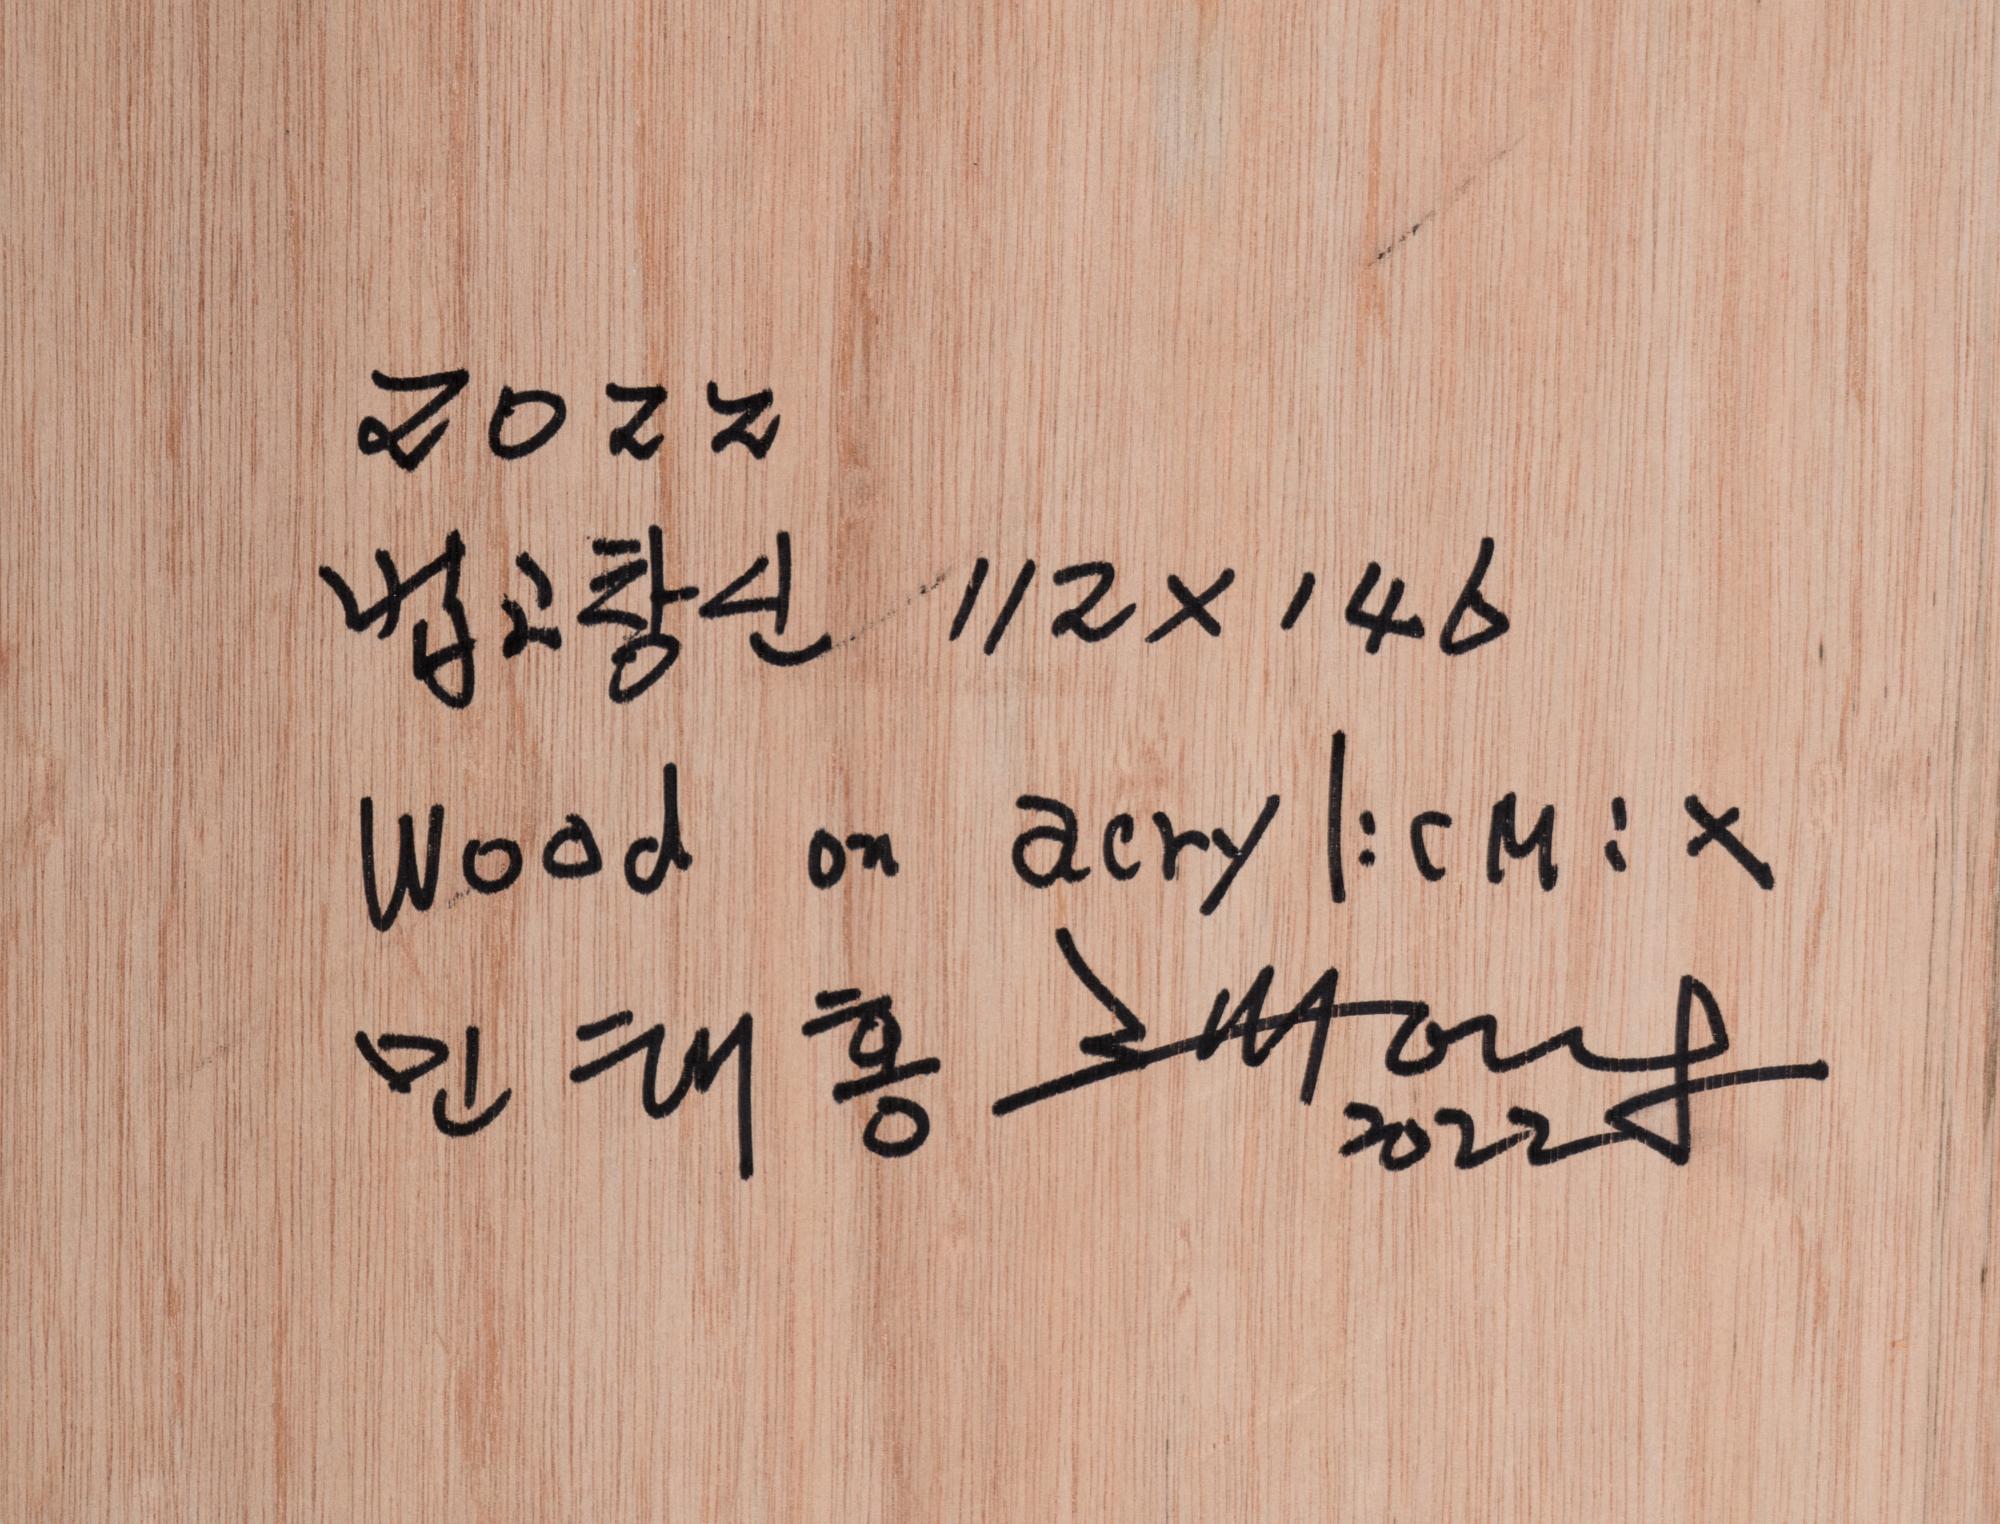 2022
법고창신 112 x 146
Wood on acrylic Mix
민태홍
2022